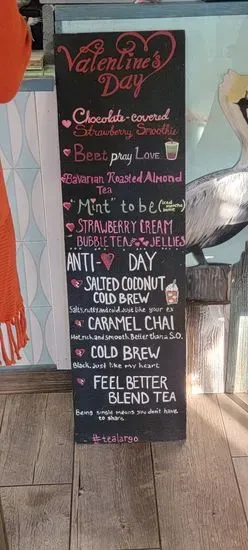 Valentine's
Day
Chocolate-covered
Strawberry Smoothie
Beet pray Love
Bavarian Roasted Almond
Tea
"Mint" to be (iced matcha
latte)
STRAWBERRY CREAM
BUBBLE TEA JELLIES
ANTI- DAY
SALTED COCONUT
COLD BREW
Salty, nutty and cold. Just like your ex
CARAMEL CHAI
Hot, rich and smooth. Better than a S.O.
COLD BREW
Black, just like my heart
FEEL BETTER
BLEND TEA
Being single means you don't have
to share.
#tealargo